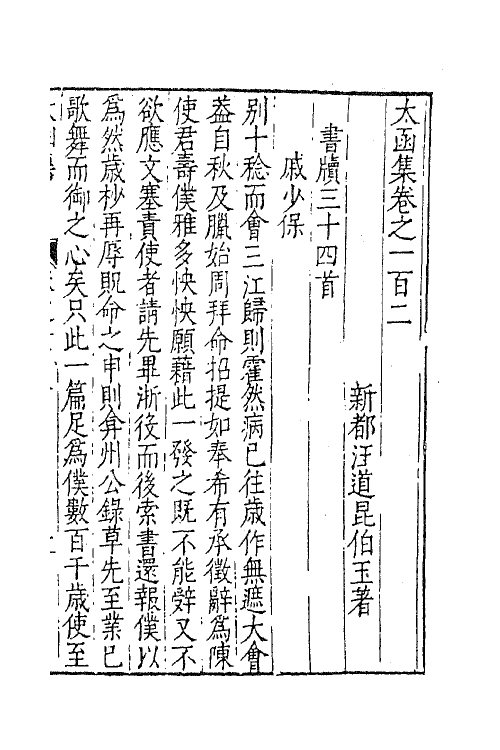 太函集卷之一百二
新都汪道昆伯玉著
書牘三十四首
戚少保
别十稔而會三江歸則霍然病已往歲作無遮大會
葢自秋及臘始周拜命招提如奉希有承徵辭為陳
使君壽僕雅多怏怏願藉此一發之既不能辤又不
欲應文塞責使者請先畢浙後而後索書還報僕以
為然歲杪再辱貺命之申則弇州公錄草先至業已
歌舞而御之心矣只此一篇足為僕數百千歲使至